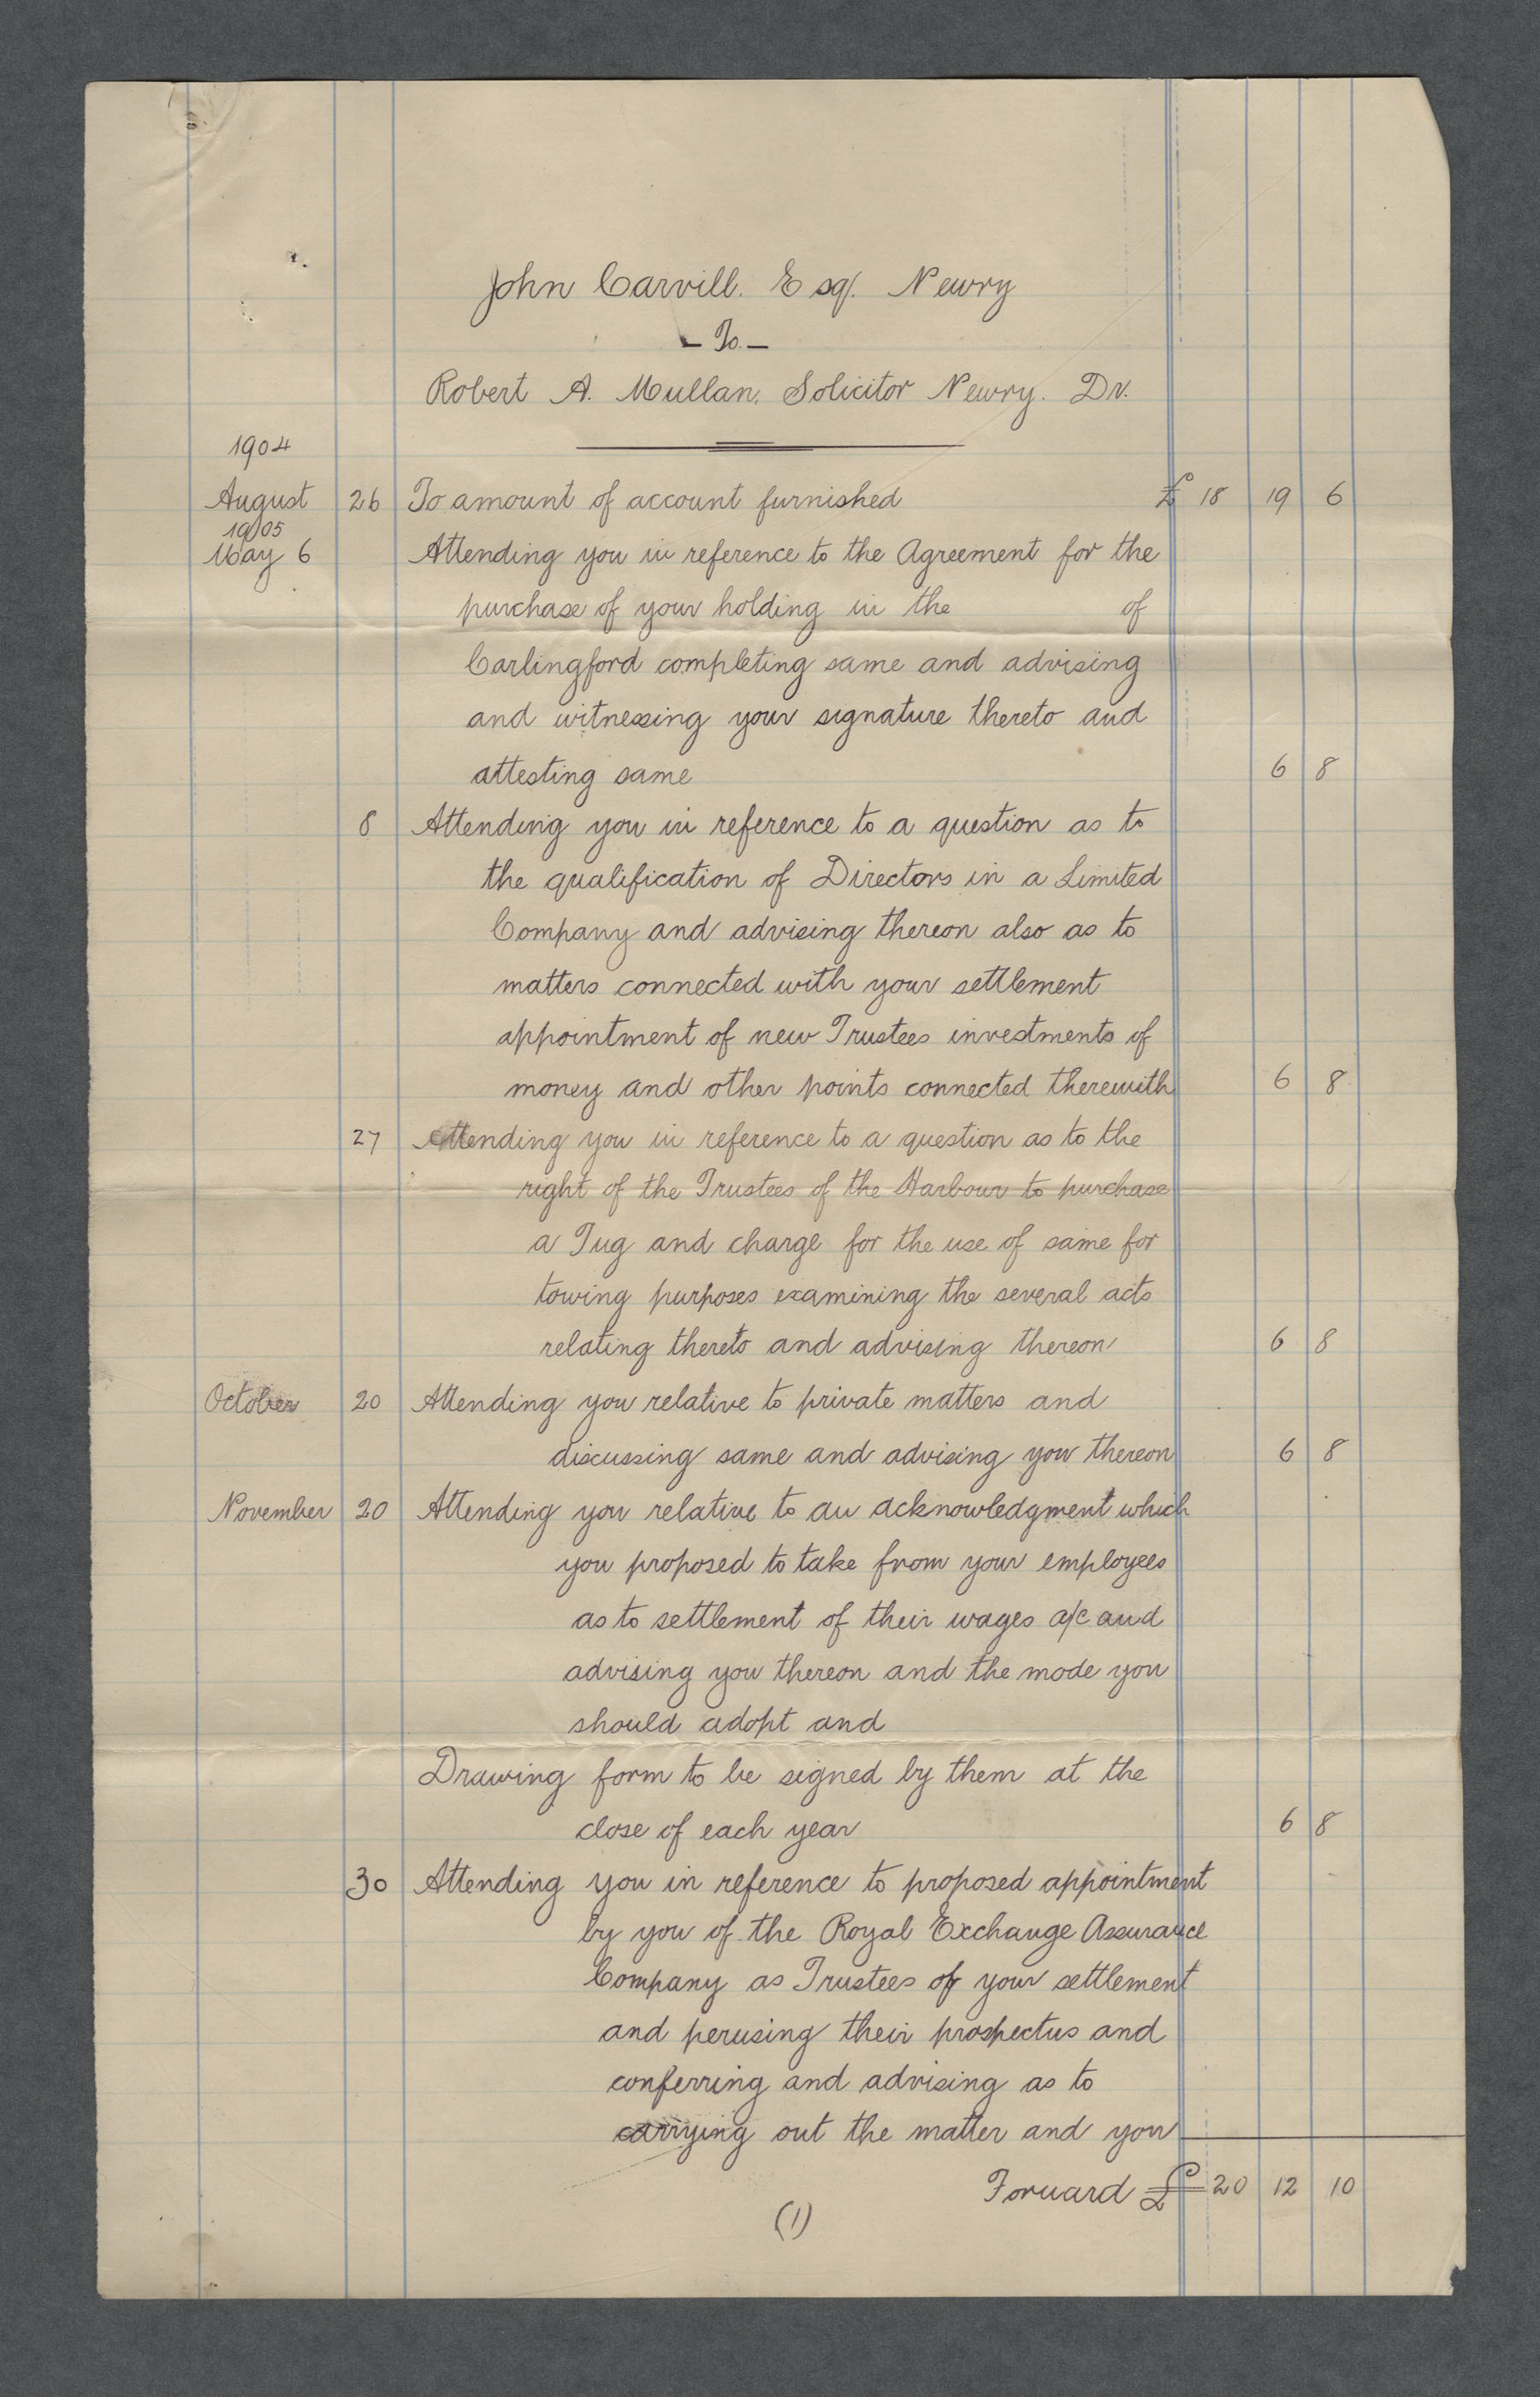 John Carvill. Esq. Newry
- To. -
Robert A. Mullan. Solicitor Newry. Dr.
1904
August 26 To amount of account furnished £ 18 19 6
1905
May 6 Attending you in reference to the Agreement for the
purchase of your holding in the of
Carlingford completing same and advising
and witnessing your signature thereto and
attesting same 6 8
8 Attending you in reference to a question as to
the qualification of Directors in a Limited
Company and advising thereon also as to
matters connected with your settlement
appointment of new Trustees investments of
money and other points connected therewith 6 8
27 Attending you in reference to a question as to the
right of the Trustees of the Harbour to purchase
a Tug and charge for the use of same for
towing purposes examining the several acts
relating thereto and advising thereon 6 8
October 20 Attending you relative to private matters and
discussing same and advising you thereon 6 8
November 20 Attending you relative to an acknowledgment which
you proposed to take from your employees
as to settlement of their wages a/c and
advising you thereon and the mode you
should adopt and
Drawing form to be signed by them at the
close of each year 6 8
30 Attending you in reference to proposed appointment
by you of the Royal Exchange Assurance
Company as Trustees of your settlement
and perusing their prospectus and
conferring and advising as to
carrying out the matter and you
Forward £ 20 12 10
(1)